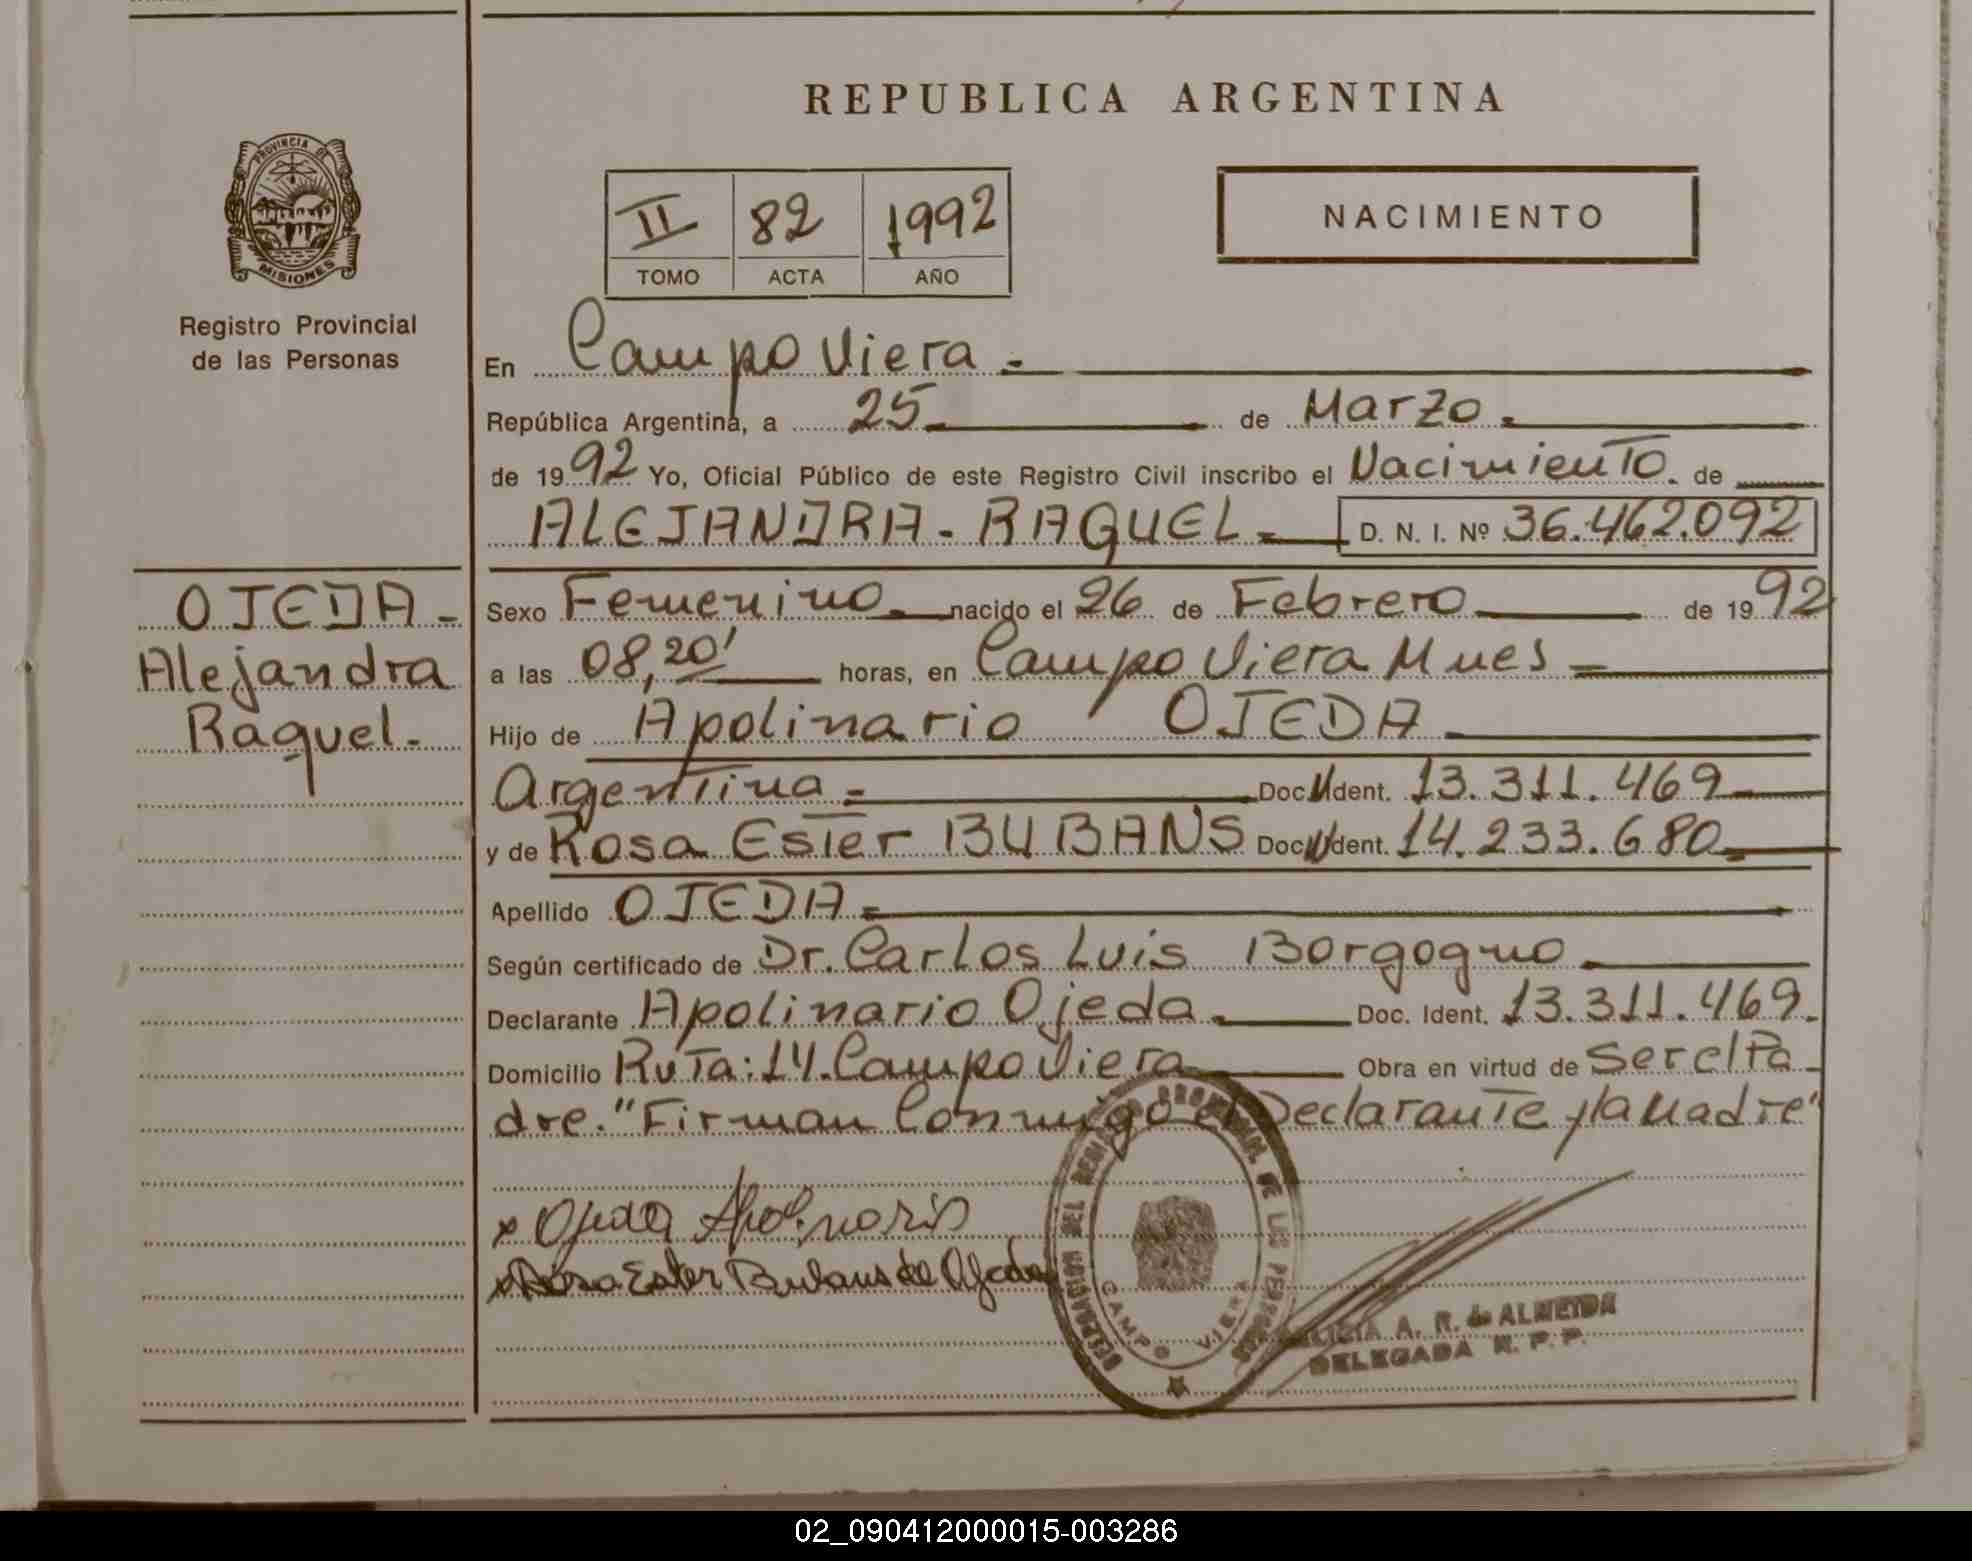 REPUBLICA ARGENTINA
PROVINCIA DE
MISIONES
Registro Provincial
de las Personas
II 82 1992
TOMO ACTA AÑO
NACIMIENTO
En Campo Viera.-
República Argentina, a 25 de Marzo.
de 1992 Yo, Oficial Público de este Registro Civil inscribo el Nacimiento. de
ALEJANDRA - RAQUEL = D. N. I. Nº 36.462.092
OJEDA -
Alejandra
Raquel.-
Sexo Femenino nacido el 26 de Febrero de 1992
a las 08,20' horas, en Campo Viera Mnes =
Hijo de Apolinario OJEDA
Argentina = Doc. Ident. 13.311.469
y de Rosa Ester BUBANS Doc. Ident. 14.233.680
Apellido OJEDA =
Según certificado de Dr. Carlos Luis Borgogno
Declarante Apolinario Ojeda. Doc. Ident. 13.311.469.
Domicilio Ruta: 14. Campo Viera Obra en virtud de Ser el Pa
dre. "Firman Conmigo el Declarante y la Madre"
x Ojeda Apolinario
x Rosa Ester Bubans de Ojeda
DELEGACION DEL REGISTRO PROVINCIAL DE LAS PERSONAS
CAMPO VIERA
ALICIA A. R. de ALMEIDA
DELEGADA R. P. P.
02_090412000015-003286